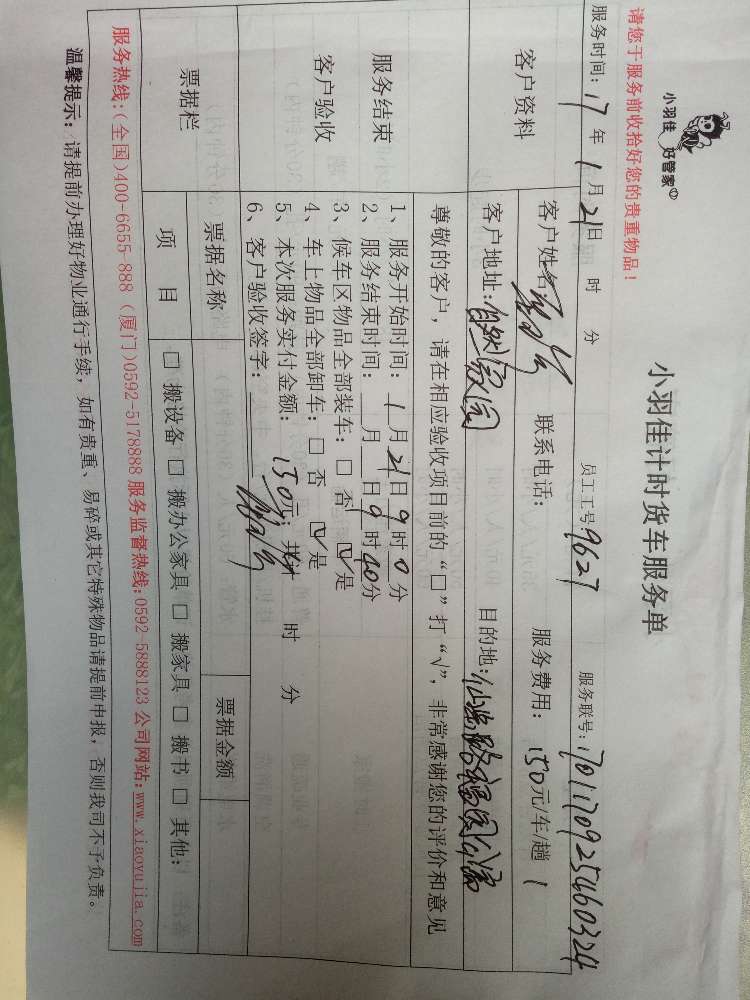 小羽佳 好管家
小羽佳计时货车服务单
请您于服务前收拾好您的贵重物品！
服务时间：17年1月21日 时 分 员工工号：9627 服务联号：1701170925460324
客户资料
客户姓名 联系电话： 服务费用：150元/车/趟 1
客户地址：自然家园 目的地：
尊敬的客户，请在相应验收项目前的“□”打“√”，非常感谢您的评价和意见
服务结束
客户验收
1、服务开始时间：1月21日9时0分
2、服务结束时间： 月 日9时40分
3、候车区物品全部装车：□ 否 ☑ 是
4、车上物品全部卸车：□ 否 ☑ 是
5、本次服务实付金额：150元；共计 时 分
6、客户验收签字：
票据栏
票据名称 票据金额
项 目 □ 搬设备 □ 搬办公家具 □ 搬家具 □ 搬书 □ 其他：
服务热线：(全国)400-6655-888 (厦门)0592-5178888 服务监督热线：0592-5888123 公司网站：www.xiaoyujia.com
温馨提示：请提前办理好物业通行手续，如有贵重、易碎或其它特殊物品请提前申报，否则我司不予负责。